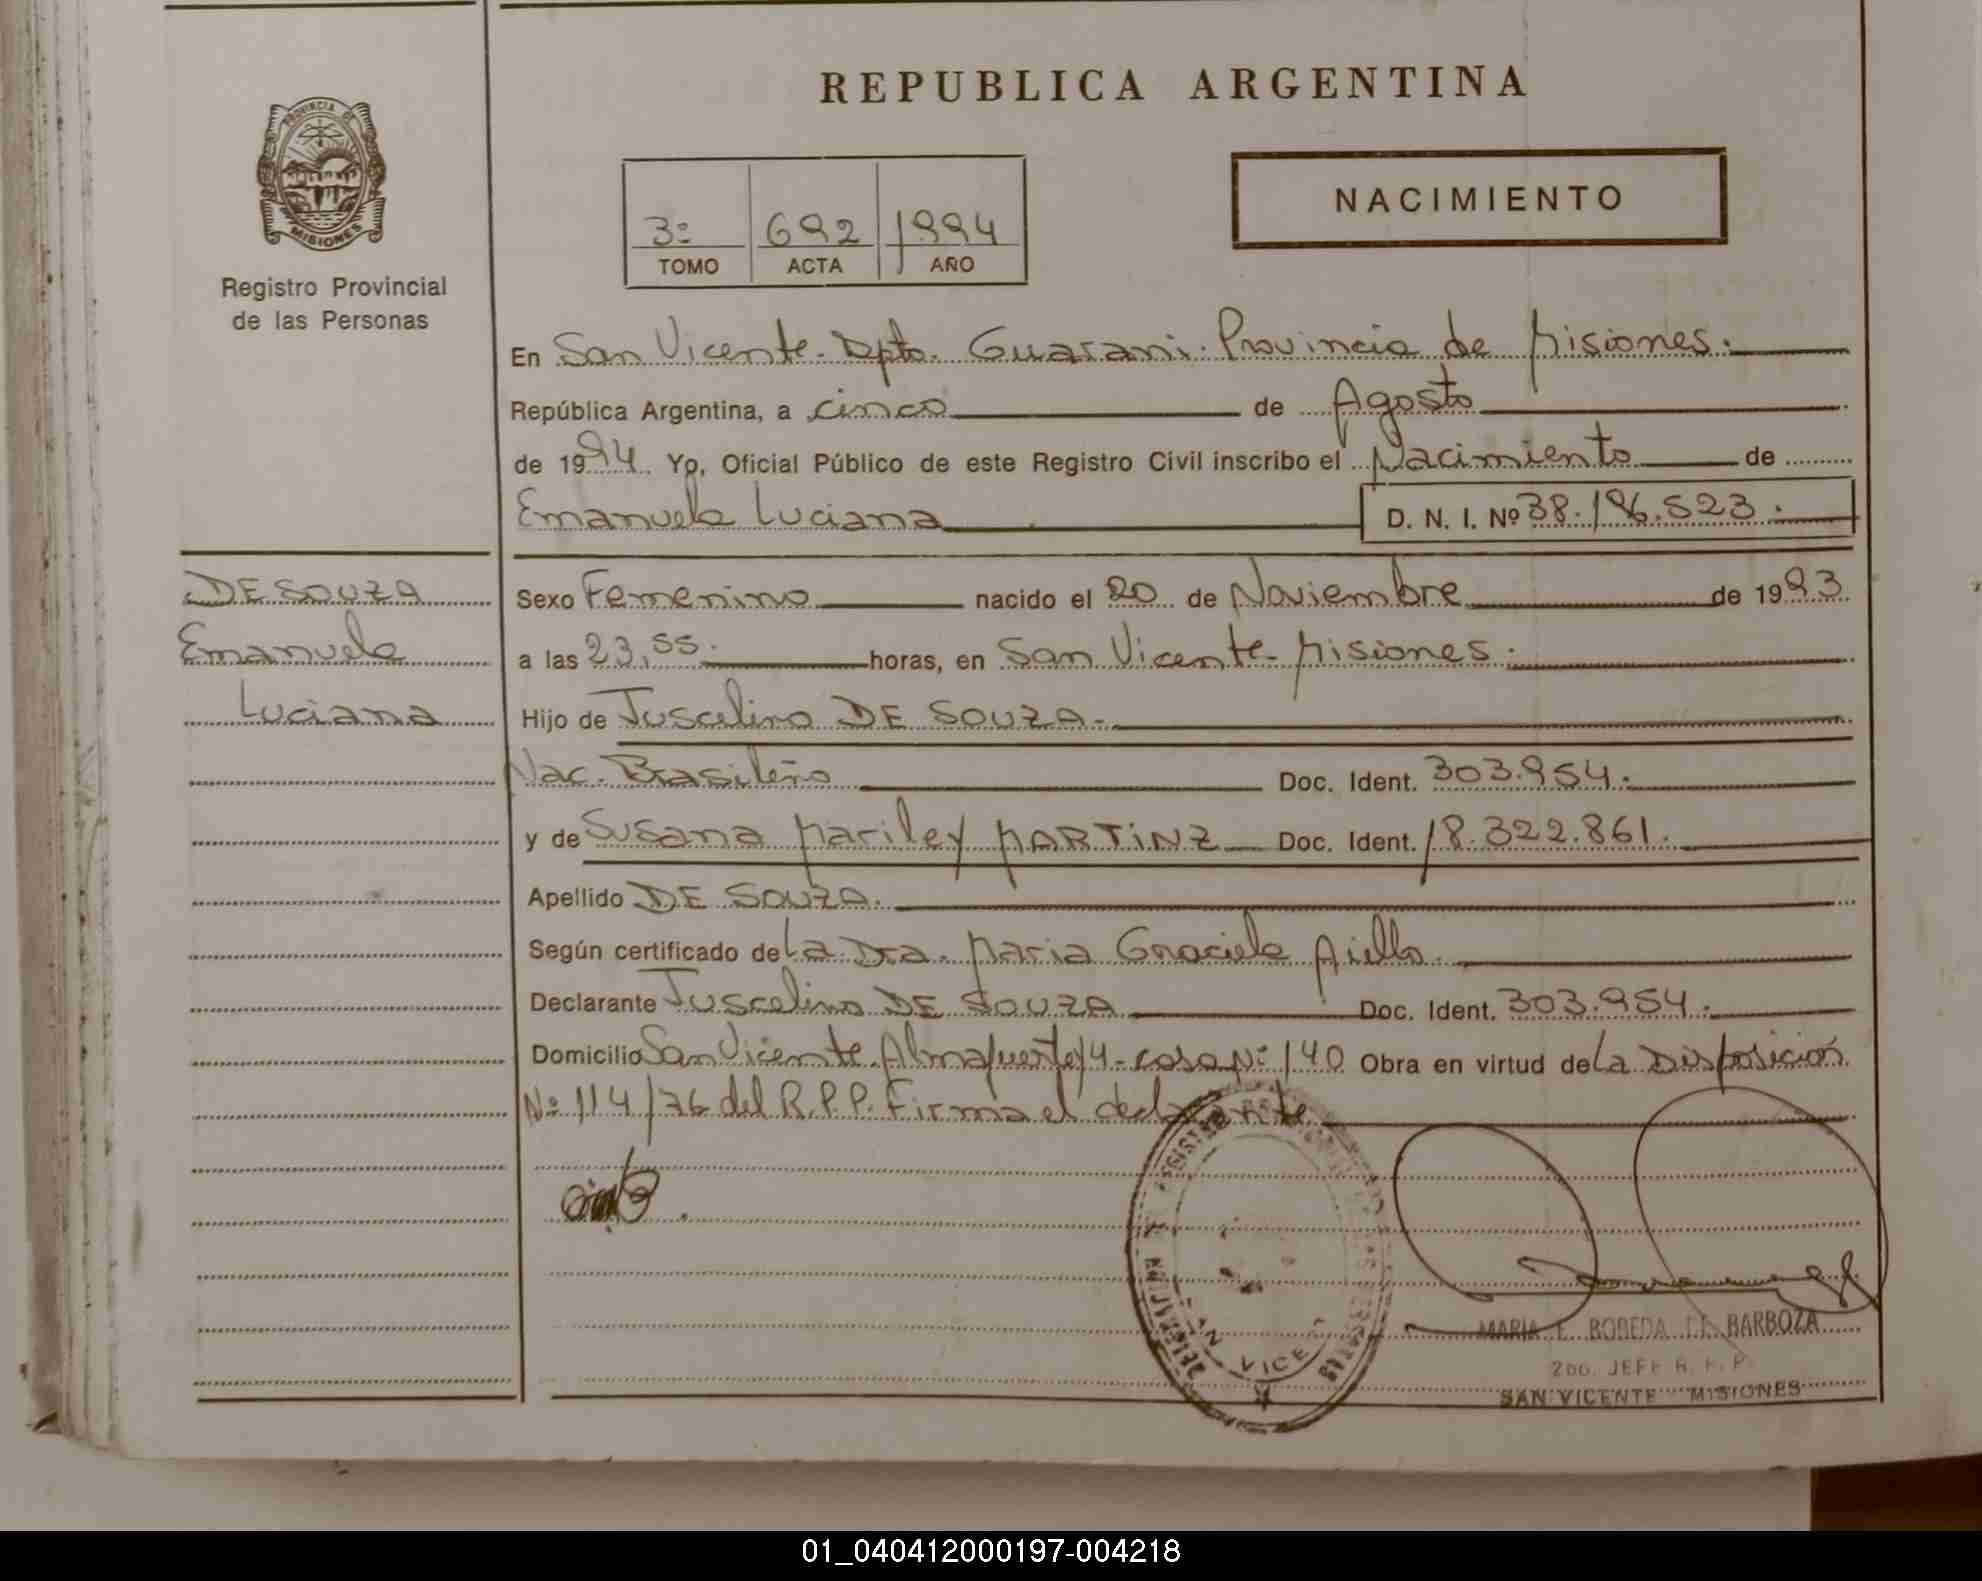 REPUBLICA ARGENTINA
PROVINCIA DE
MISIONES
Registro Provincial
de las Personas
3º 692 1994
TOMO ACTA AÑO
NACIMIENTO
En San Vicente. Dpto. Guarani. Provincia de Misiones.
República Argentina, a cinco de Agosto
de 1994. Yo, Oficial Público de este Registro Civil inscribo el Nacimiento de
Emanuela Luciana D. N. I. Nº 38.196.523.
DE SOUZA
Emanuela
Luciana
Sexo Femenino nacido el 20 de Noviembre de 1993
a las 23,55. horas, en San Vicente - Misiones.
Hijo de Juscelino DE SOUZA.
Nac. Brasileño Doc. Ident. 303.954.
y de Susana Mariley MARTINZ Doc. Ident. 18.322.861.
Apellido DE SOUZA.
Según certificado de La Dra. Maria Graciela Aiello.
Declarante Juscelino DE SOUZA Doc. Ident. 303.954.
Domicilio San Vicente. Almafuerte 14 - casa Nº 140 Obra en virtud de La Disposicion
Nº 114/76 del R.P.P. Firma el declarante
MARIA E. BOBEDA DE BARBOZA
2do. JEFE R. P. P.
SAN VICENTE MISIONES
01_040412000197-004218